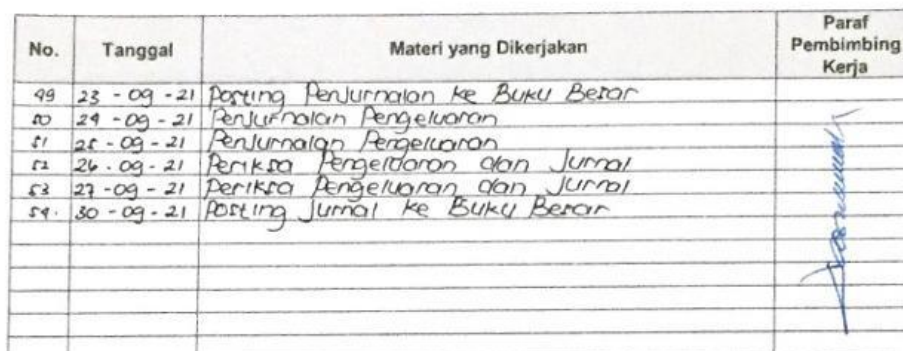 No. Tanggal Materi yang Dikerjakan Paraf Pembimbing Kerja
49 23 - 09 - 21 Posting Penjurnalan ke Buku Besar
50 24 - 09 - 21 Penjurnalan Pengeluaran
51 25 - 09 - 21 Penjurnalan Pengeluaran
52 26 - 09 - 21 Periksa Pengeluaran dan Jurnal
53 27 - 09 - 21 Periksa Pengeluaran dan Jurnal
54. 30 - 09 - 21 Posting Jurnal ke Buku Besar